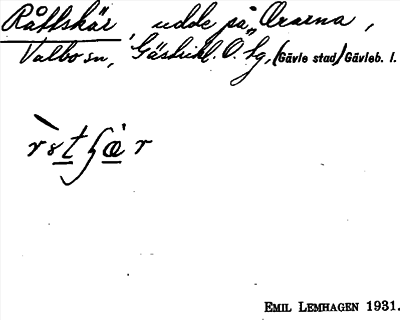 Råttskär, udde på Orarna,
Valbo sn, Gästrikl. Ö. tg, (Gävle stad) Gävleb. l.
EMIL LEMHAGEN 1931.